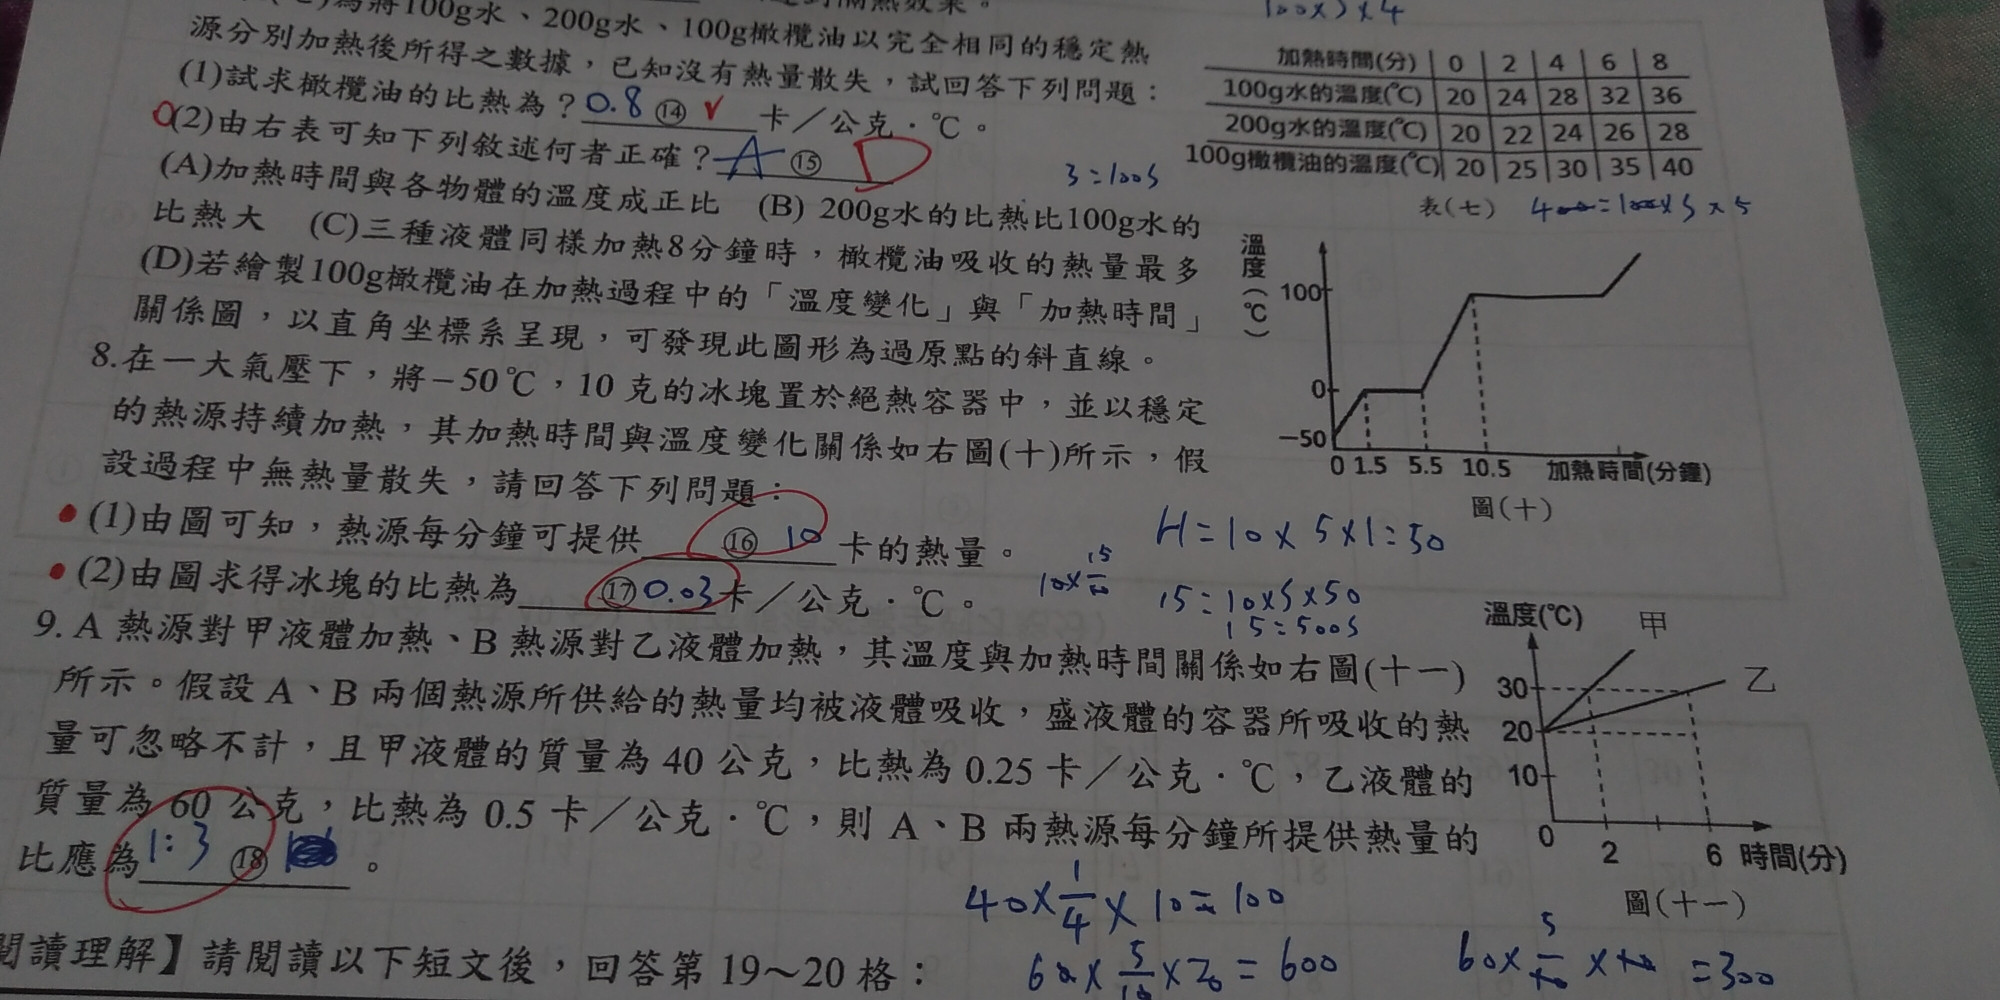 為將100g水、200g水、100g橄欖油以完全相同的穩定熱
源分別加熱後所得之數據,已知沒有熱量散失,試回答下列問題:
(1)試求橄欖油的比熱為?0.8 ⑭ ✓ 卡/公克・℃。
(2)由右表可知下列敘述何者正確? A ⑮ D
(A)加熱時間與各物體的溫度成正比 (B) 200g水的比熱比100g水的
比熱大 (C)三種液體同樣加熱8分鐘時,橄欖油吸收的熱量最多
(D)若繪製100g橄欖油在加熱過程中的「溫度變化」與「加熱時間」
關係圖,以直角坐標系呈現,可發現此圖形為過原點的斜直線。
加熱時間(分) 0 2 4 6 8
100g水的溫度(℃) 20 24 28 32 36
200g水的溫度(℃) 20 22 24 26 28
100g橄欖油的溫度(℃) 20 25 30 35 40
表(七)
8.在一大氣壓下,將-50℃,10 克的冰塊置於絕熱容器中,並以穩定
的熱源持續加熱,其加熱時間與溫度變化關係如右圖(十)所示,假
設過程中無熱量散失,請回答下列問題:
(1)由圖可知,熱源每分鐘可提供 ⑯ 10 卡的熱量。
(2)由圖求得冰塊的比熱為 ⑰ 0.03 卡/公克・℃。
溫度(℃)
100
0
-50
0 1.5 5.5 10.5 加熱時間(分鐘)
圖(十)
H=10×5×1=50
15=10×S×50
15=500S
9. A 熱源對甲液體加熱、B 熱源對乙液體加熱,其溫度與加熱時間關係如右圖(十一)
所示。假設 A、B 兩個熱源所供給的熱量均被液體吸收,盛液體的容器所吸收的熱
量可忽略不計,且甲液體的質量為 40 公克,比熱為 0.25 卡/公克・℃,乙液體的
質量為 60 公克,比熱為 0.5 卡/公克・℃,則 A、B 兩熱源每分鐘所提供熱量的
比應為 1:3 ⑱ 。
溫度(℃) 甲
乙
30
20
10
0 2 6 時間(分)
圖(十一)
40×1/4×10=100
閱讀理解】請閱讀以下短文後,回答第 19~20 格: